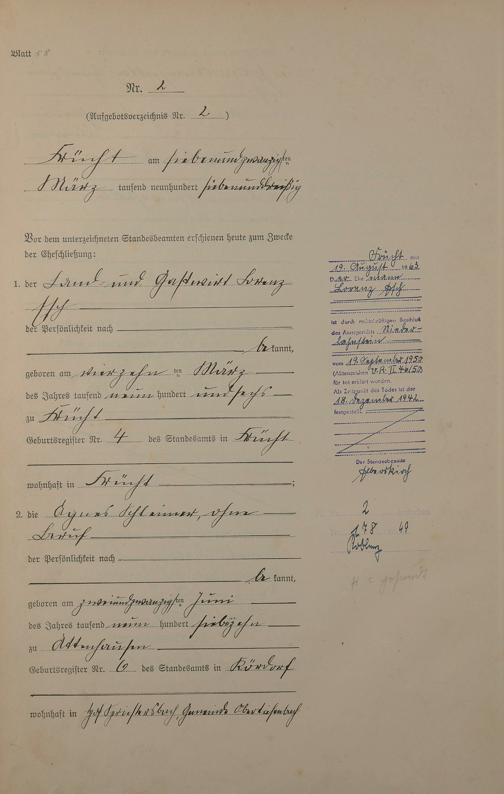 Blatt 58
Nr. 2
(Aufgebotsverzeichnis Nr. 2)
Frücht am siebenundzwanzigsten
März tausend neunhundert siebenunddreißig
Vor dem unterzeichneten Standesbeamten erschienen heute zum Zwecke
der Eheschließung:
1. der Land- und Gastwirt Lorenz
der Persönlichkeit nach
be kannt,
geboren am vierzehn ten März
des Jahres tausend neun hundert und sechs
zu Frücht
Geburtsregister Nr. 4 des Standesamts in Frücht
wohnhaft in Frücht ;
2. die Agnes Schleimer, ohne
Beruf
der Persönlichkeit nach
be kannt,
geboren am zweiundzwanzigsten Juni
des Jahres tausend neun hundert siebzehn
zu Attenhausen
Geburtsregister Nr. 6 des Standesamts in Kördorf
wohnhaft in Hof Gemeinde
Frücht, den
19. August 1963
Lorenz
ist durch rechtskräftigen Beschluß
des Amtsgerichts Nieder-
lahnstein
vom 19. September 1950
(Aktenzeichen
für tot erklärt worden.
Als Zeitpunkt des Todes ist der
18. Dezember 1942
festgestellt.
Der Standesbeamte
2
49